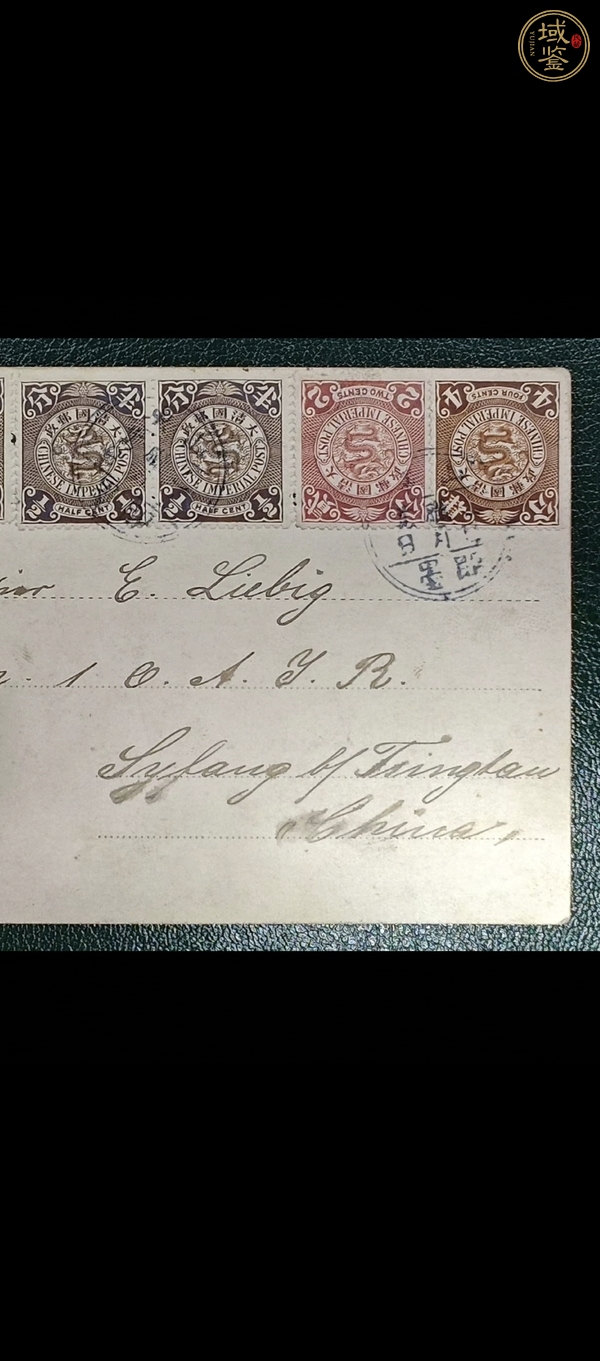 域鉴
YUJIAN
大清國郵政
CHINESE IMPERIAL POST
半分
½ ½
HALF CENT
大清國郵政
CHINESE IMPERIAL POST
半分
½ ½
HALF CENT
2 2
TWO CENTS
CHINESE IMPERIAL POST
大清國郵政
貳分
4 4
FOUR CENTS
CHINESE IMPERIAL POST
大清國郵政
肆分
E. Liebig
1 O. A. J. R.
Syfang b/ Tsingtau
China,